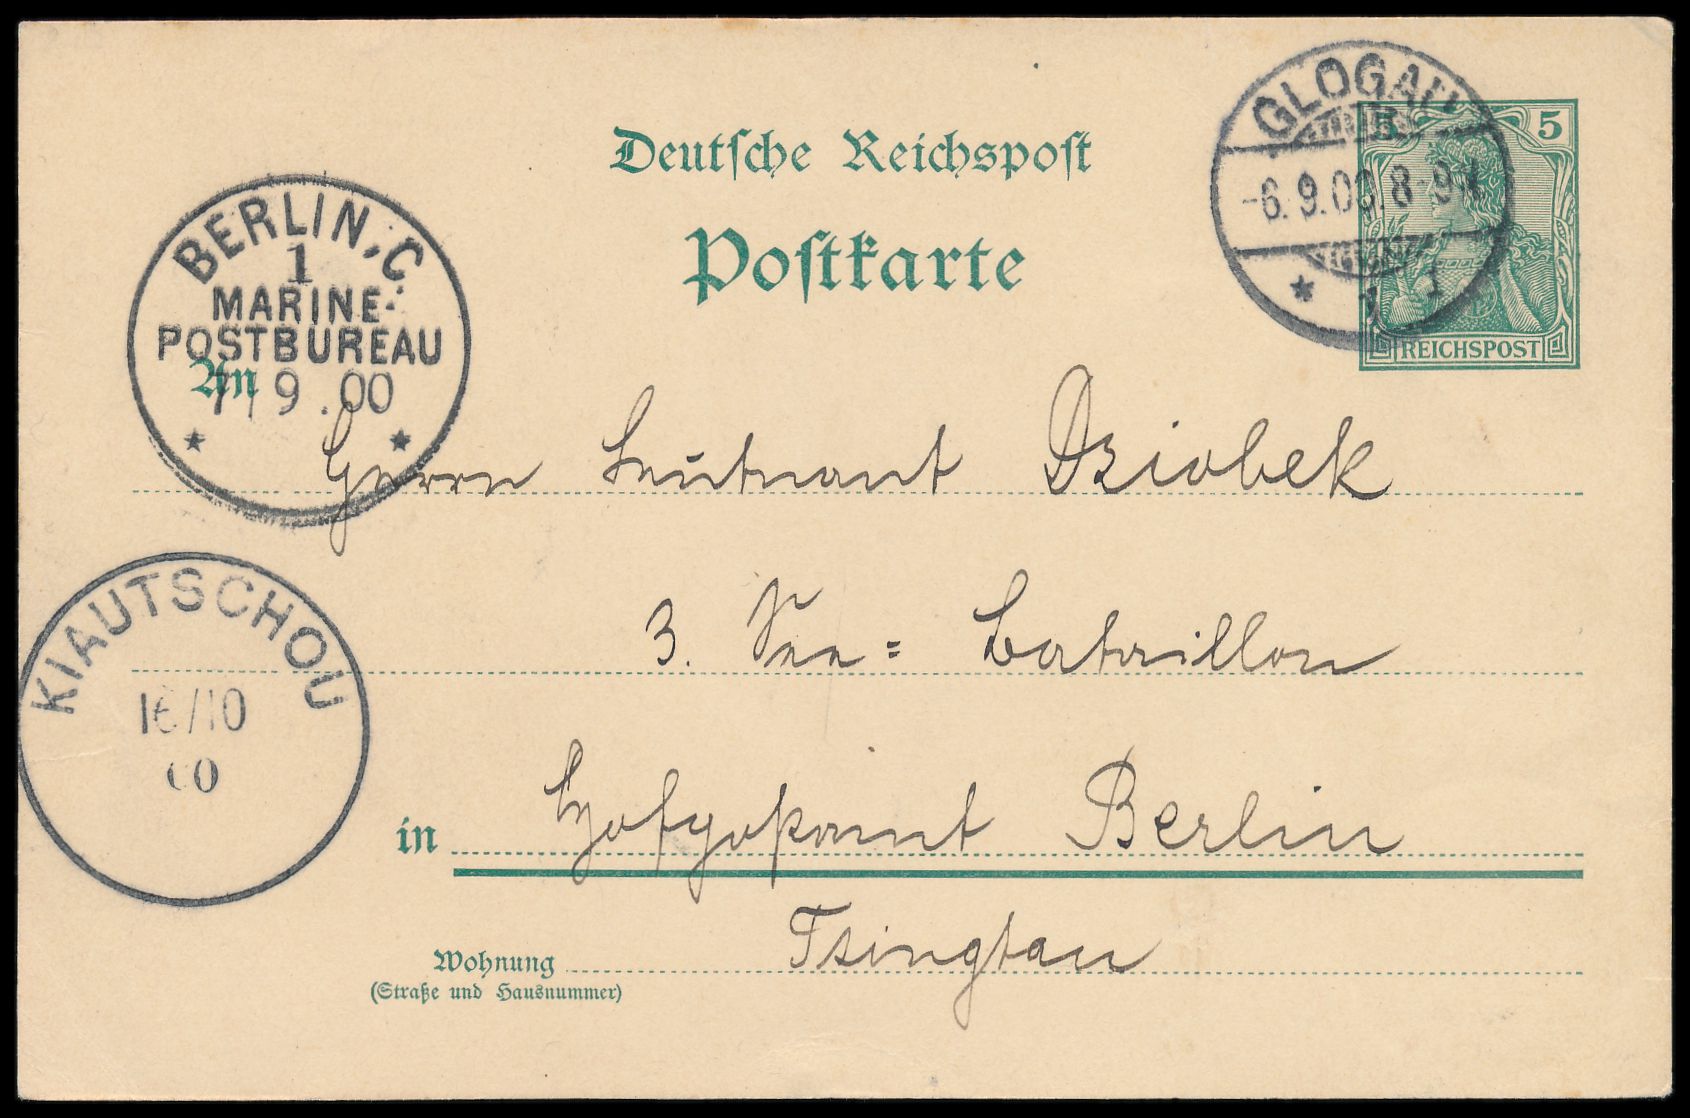 Deutsche Reichspost
Postkarte
GLOGAU
-6.9.00.8-9V
* 1
5 5
REICHSPOST
BERLIN, C
1
MARINE-
POSTBUREAU
7/9.00
* *
An
Herrn Leutnant Dziobek
3. See= Bataillon
KIAUTSCHOU
16/10
00
in Hofpostamt Berlin
Tsingtau
Wohnung
(Straße und Hausnummer)